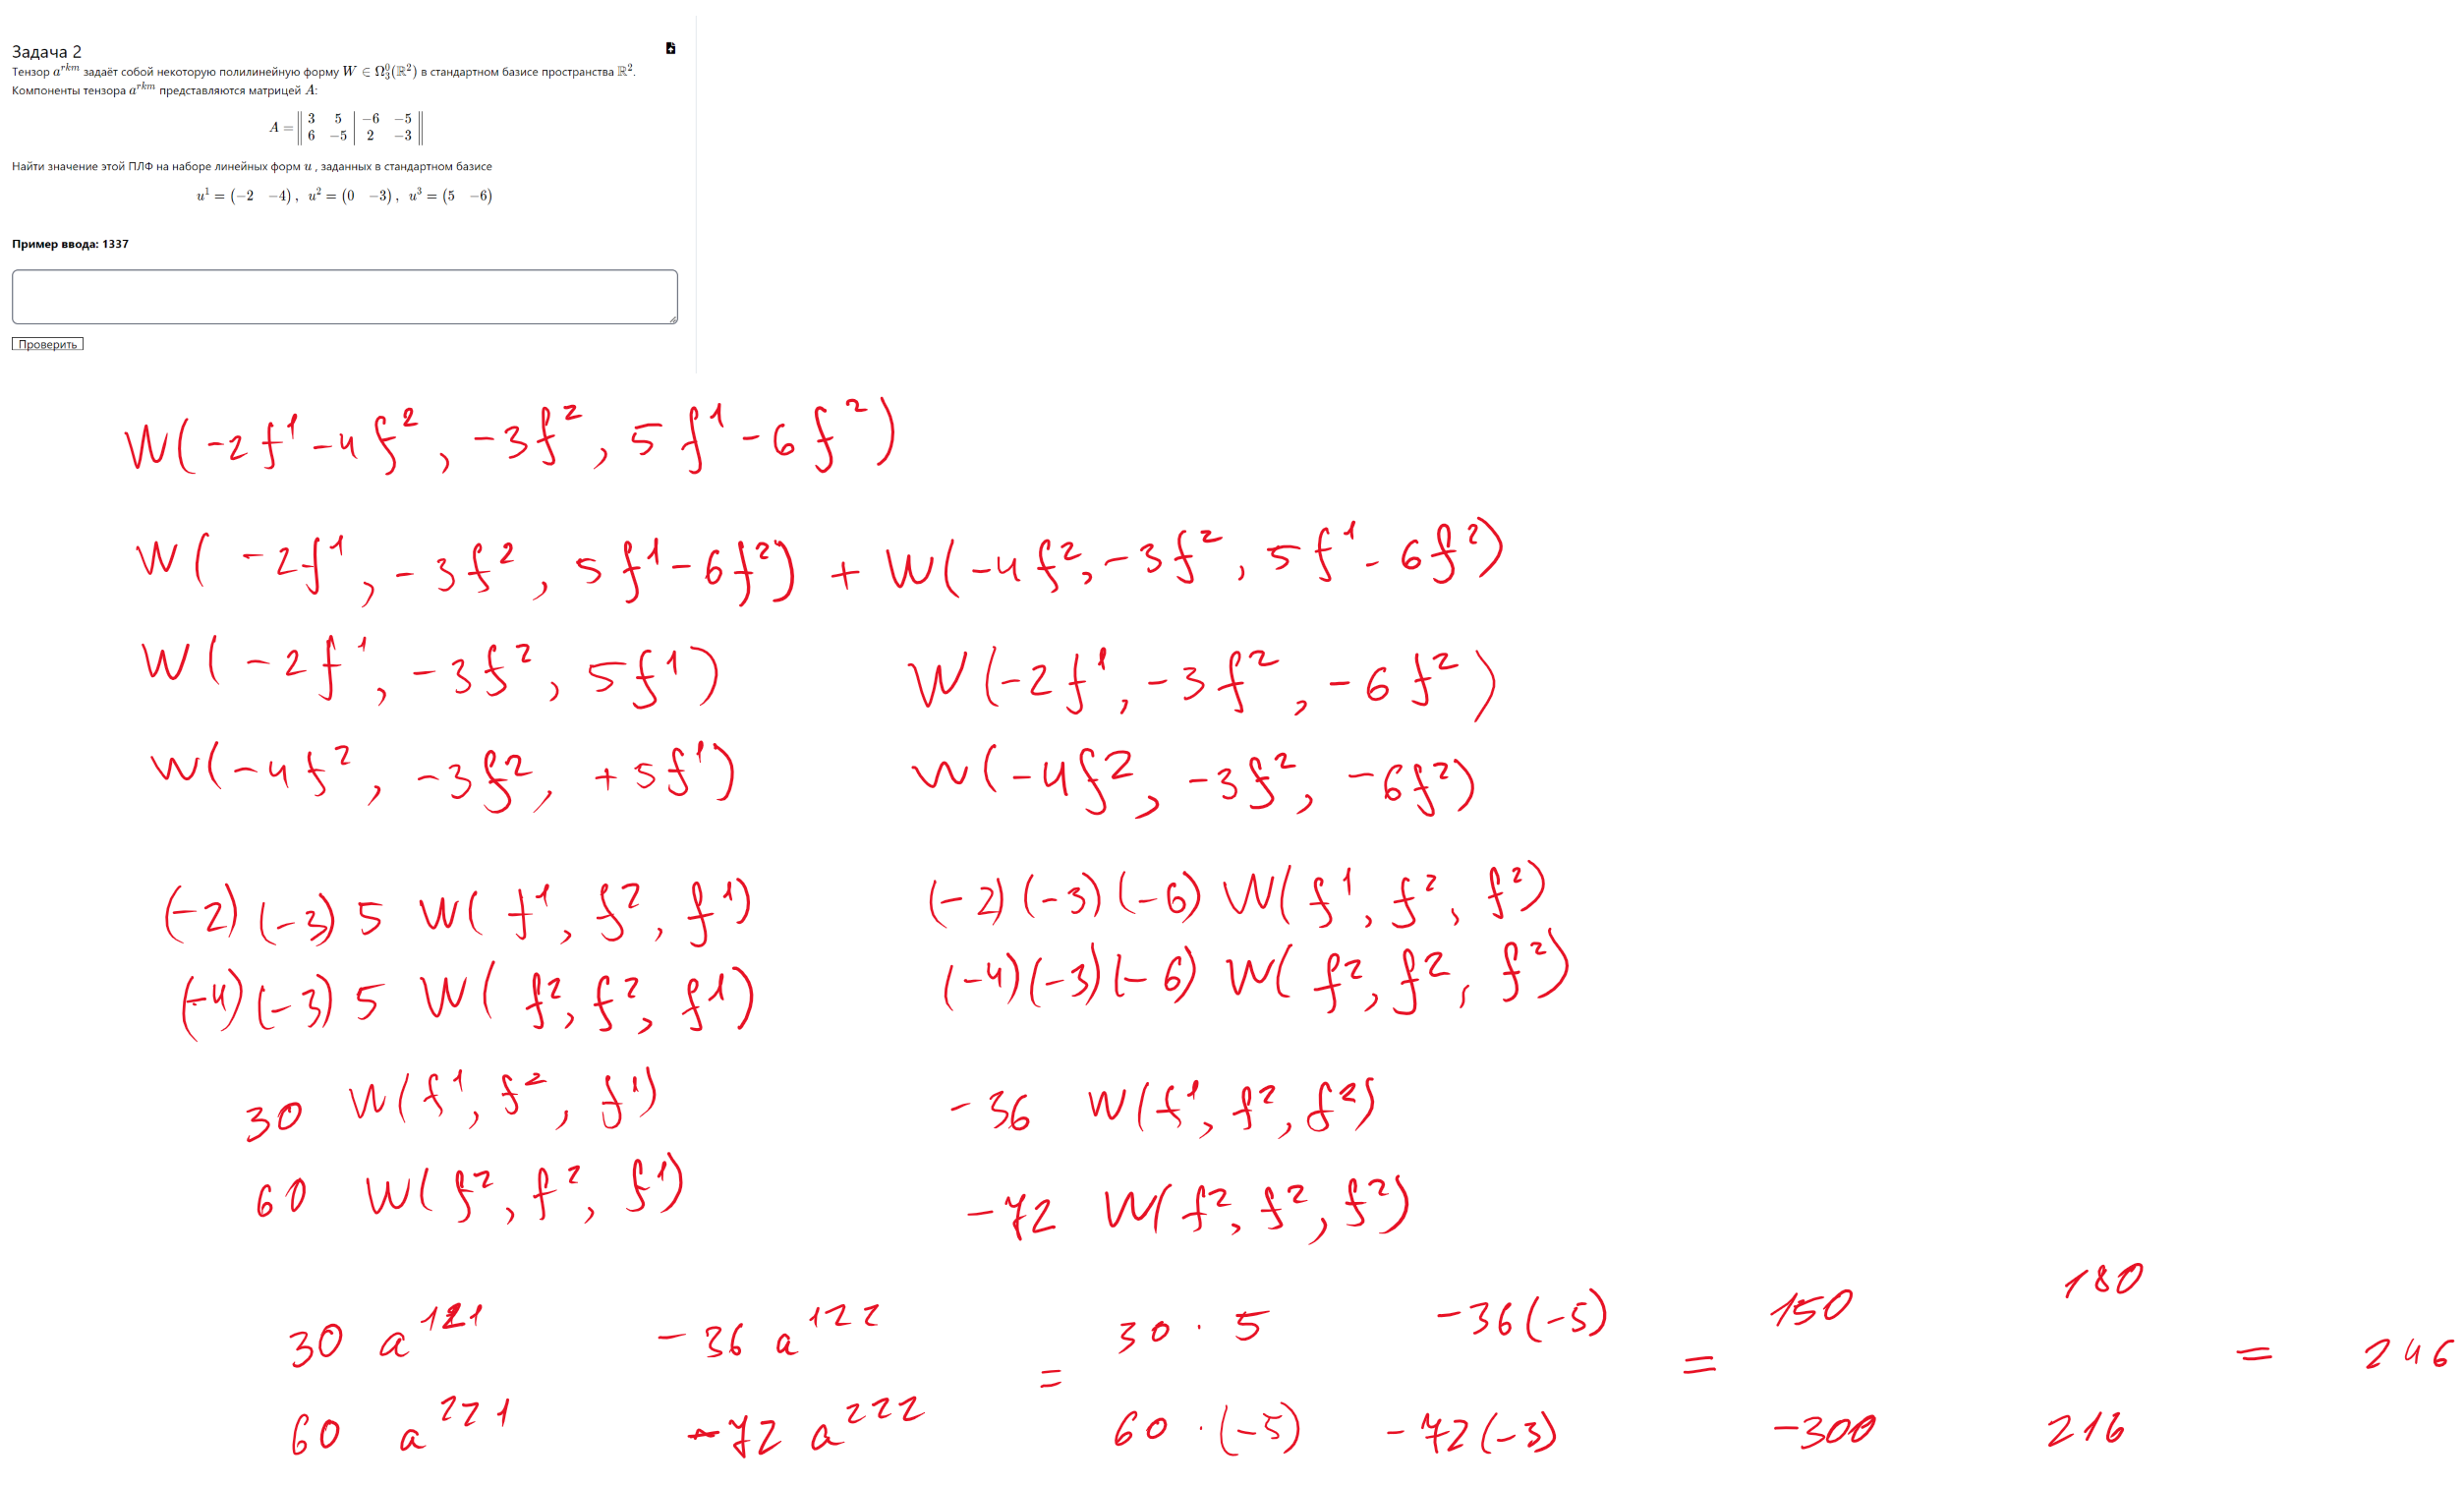 Задача 2
Тензор a^{rkm} задаёт собой некоторую полилинейную форму W ∈ Ω^0_3(ℝ^2) в стандартном базисе пространства ℝ^2.
Компоненты тензора a^{rkm} представляются матрицей A:
A = ‖ 3 5 | −6 −5 ‖
‖ 6 −5 | 2 −3 ‖
Найти значение этой ПЛФ на наборе линейных форм u , заданных в стандартном базисе
u^1 = (−2 −4) , u^2 = (0 −3) , u^3 = (5 −6)
Пример ввода: 1337
Проверить
W(-2f^1-4f^2, -3f^2, 5f^1-6f^2)
W(-2f^1, -3f^2, 5f^1-6f^2) + W(-4f^2, -3f^2, 5f^1-6f^2)
W(-2f^1, -3f^2, 5f^1) W(-2f^1, -3f^2, -6f^2)
W(-4f^2, -3f^2, +5f^1) W(-4f^2, -3f^2, -6f^2)
(-2)(-3)5 W(f^1, f^2, f^1) (-2)(-3)(-6) W(f^1, f^2, f^2)
(-4)(-3)5 W(f^2, f^2, f^1) (-4)(-3)(-6) W(f^2, f^2, f^2)
30 W(f^1, f^2, f^1) -36 W(f^1, f^2, f^2)
60 W(f^2, f^2, f^1) -72 W(f^2, f^2, f^2)
30 a^{121} -36 a^{122} 30 · 5 -36(-5) 150 180
= = = 246
60 a^{221} -72 a^{222} 60 · (-5) -72(-3) -300 216